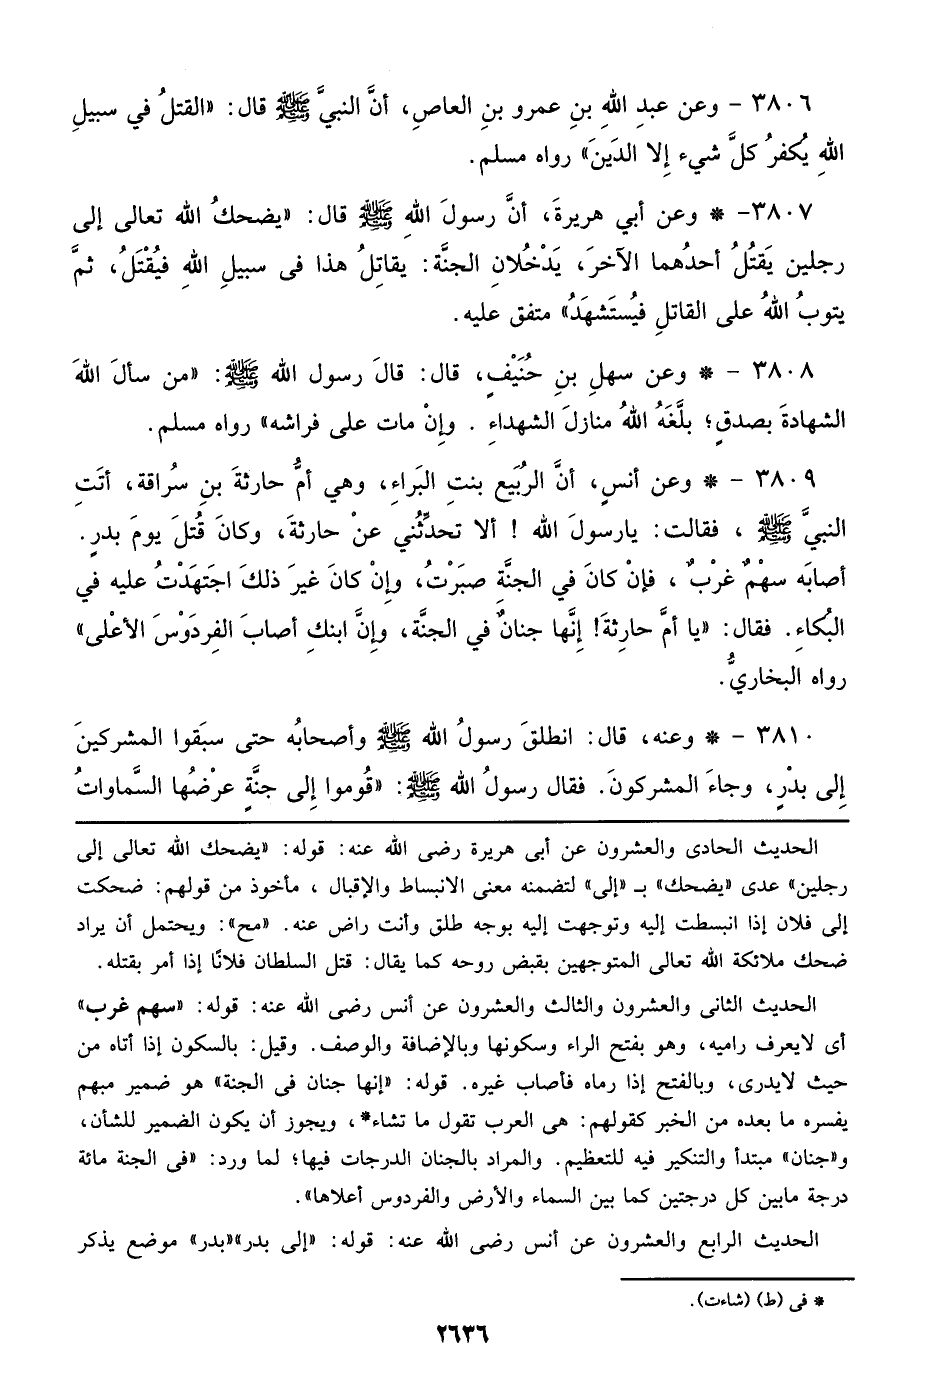 ٣٨٠٦ - وعن عبدِ اللهِ بنِ عمرو بنِ العاصِ، أنَّ النبيَّ ﷺ قال: «القتلُ في سبيلِ
اللهِ يُكفرُ كلَّ شيء إِلا الدَينَ» رواه مسلم.
٣٨٠٧- * وعن أبي هريرةَ، أنَّ رسولَ اللهِ ﷺ قال: «يضحكُ الله تعالى إلى
رجلين يَقتُلُ أحدُهما الآخرَ، يَدْخُلانِ الجنَّة: يقاتلُ هذا فى سبيلِ اللهِ فيُقْتَلُ، ثمَّ
يتوبُ اللهُ على القاتلِ فيُستَشهَدُ» متفق عليه.
٣٨٠٨ - * وعن سهلِ بنِ حُنَيْفٍ، قال: قالَ رسول الله ﷺ: «من سألَ اللهَ
الشهادةَ بصدقٍ؛ بلَّغَهُ اللهُ منازلَ الشهداءِ . وإِنْ مات على فراشه» رواه مسلم.
٣٨٠٩ - * وعن أنسٍ، أنَّ الرُبَيع بنتِ البَراءِ، وهي أمُّ حارثةَ بنِ سُراقة، أتَتِ
النبيَّ ﷺ ، فقالت: يارسولَ الله ! ألا تحدِّثُني عنْ حارثةَ، وكانَ قُتلَ يومَ بدرٍ.
أصابَه سهْمٌ غرْبٌ ، فإنْ كانَ في الجنَّة صبَرْتُ، وإِنْ كانَ غيرَ ذلكَ اجتَهَدْتُ عليه في
البُكاءِ. فقال: «يا أمَّ حارِثةَ! إِنَّها جنانٌ في الجنة، وإِنَّ ابنكِ أصابَ الفِردَوْسَ الأعْلى»
رواه البخاريُّ.
٣٨١٠ - * وعنه، قال: انطلقَ رسولُ الله ﷺ وأصحابُه حتى سبَقوا المشركينَ
إِلى بدْرٍ، وجاءَ المشركونَ. فقال رسولُ الله ﷺ: «قُوموا إِلى جنَّةٍ عرْضُها السَّماواتُ
الحديث الحادى والعشرون عن أبى هريرة رضى الله عنه: قوله: «يضحك الله تعالى إلى
رجلين» عدى «يضحك» بـ «إلى» لتضمنه معنى الانبساط والإقبال ، مأخوذ من قولهم: ضحكت
إلى فلان إذا انبسطت إليه وتوجهت إليه بوجه طلق وأنت راض عنه. «مح»: ويحتمل أن يراد
ضحك ملائكة الله تعالى المتوجهين بقبض روحه كما يقال: قتل السلطان فلانًا إذا أمر بقتله.
الحديث الثانى والعشرون والثالث والعشرون عن أنس رضى الله عنه: قوله: «سهم غرب»
أى لايعرف راميه، وهو بفتح الراء وسكونها وبالإضافة والوصف. وقيل: بالسكون إذا أتاه من
حيث لايدرى، وبالفتح إذا رماه فأصاب غيره. قوله: «إنها جنان فى الجنة» هو ضمير مبهم
يفسره ما بعده من الخبر كقولهم: هى العرب تقول ما تشاء*، ويجوز أن يكون الضمير للشأن،
و«جنان» مبتدأ والتنكير فيه للتعظيم. والمراد بالجنان الدرجات فيها؛ لما ورد: «فى الجنة مائة
درجة مابين كل درجتين كما بين السماء والأرض والفردوس أعلاها».
الحديث الرابع والعشرون عن أنس رضى الله عنه: قوله: «إلى بدر»«بدر» موضع يذكر
* فى (ط) (شاءت).
٢٦٣٦